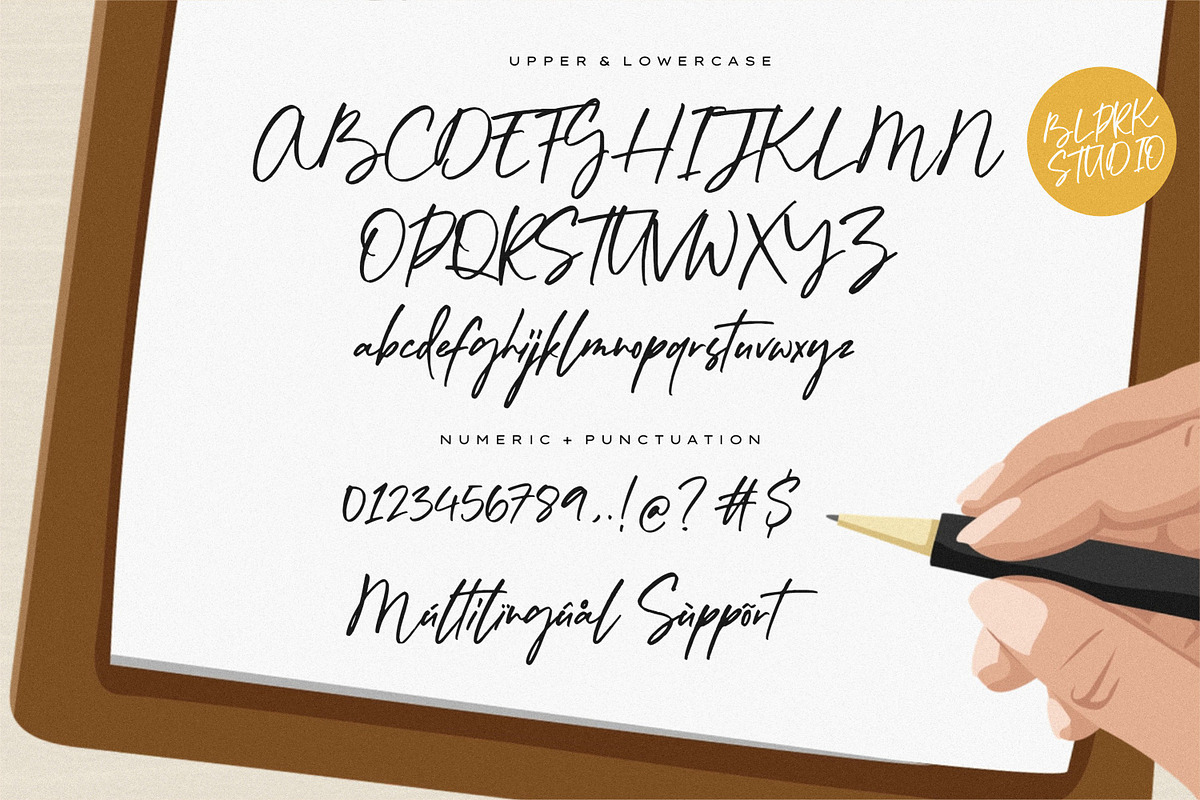 UPPER & LOWERCASE
ABCDEFGHIJKLMN
BLPRK
STUDIO
OPQRSTUVWXYZ
abcdefghijklmnopqrstuvwxyz
NUMERIC + PUNCTUATION
0123456789,.!@?#$
Múltilïngûål Sùppõrt